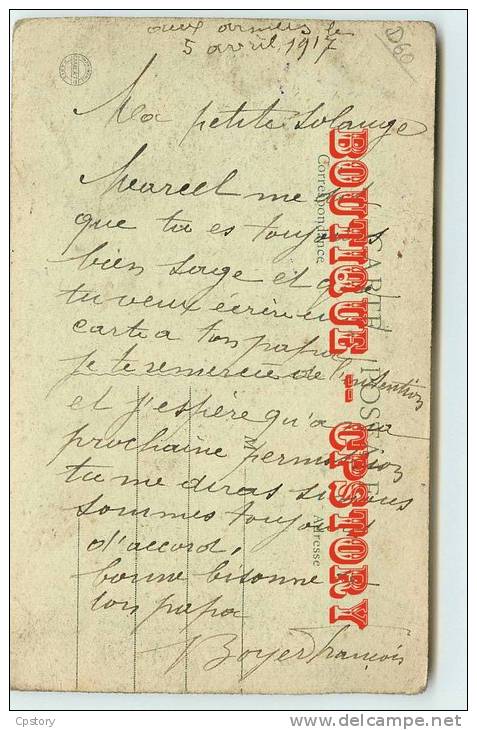 aux armées le
5 avril 1917
D60
Ma petite Solange
Marcel me dit
que tu es toujours
bien sage et que
tu veux écrire une
carte a ton papa
je te remercie de l'intention
et j'espère qu'a ma
prochaine permission
tu me diras si nous
sommes toujours
d'accord,
bonne bise de
ton papa
Boyer François
CARTE POSTALE
Correspondance
Adresse
M
BOUTIQUE -- CPSTORY
Cpstory
delcampe.net